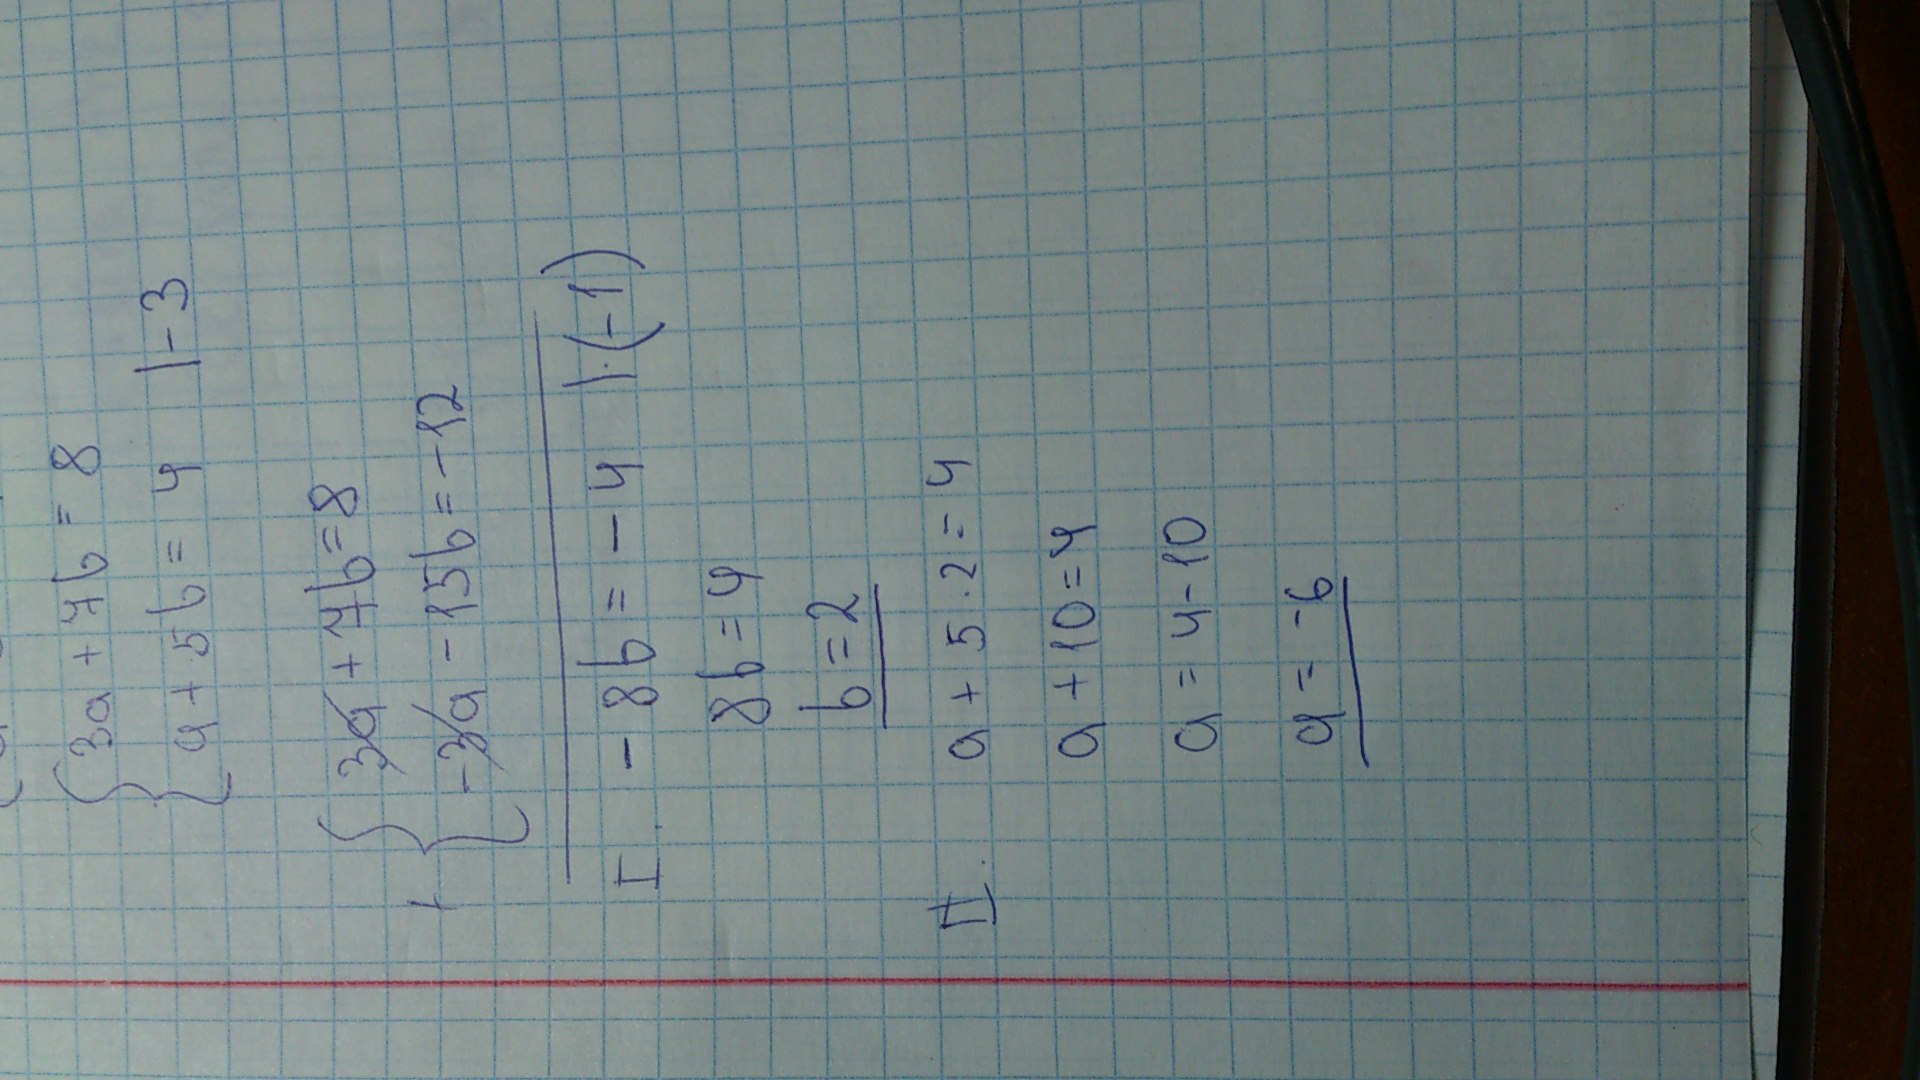 {3a + 7b = 8
a + 5b = 4 |-3
+ {3a + 7b = 8
-3a - 15b = -12
I. - 8b = - 4 |·(-1)
8b = 4
b = 2
II. a + 5·2 = 4
a + 10 = 4
a = 4 - 10
a = -6